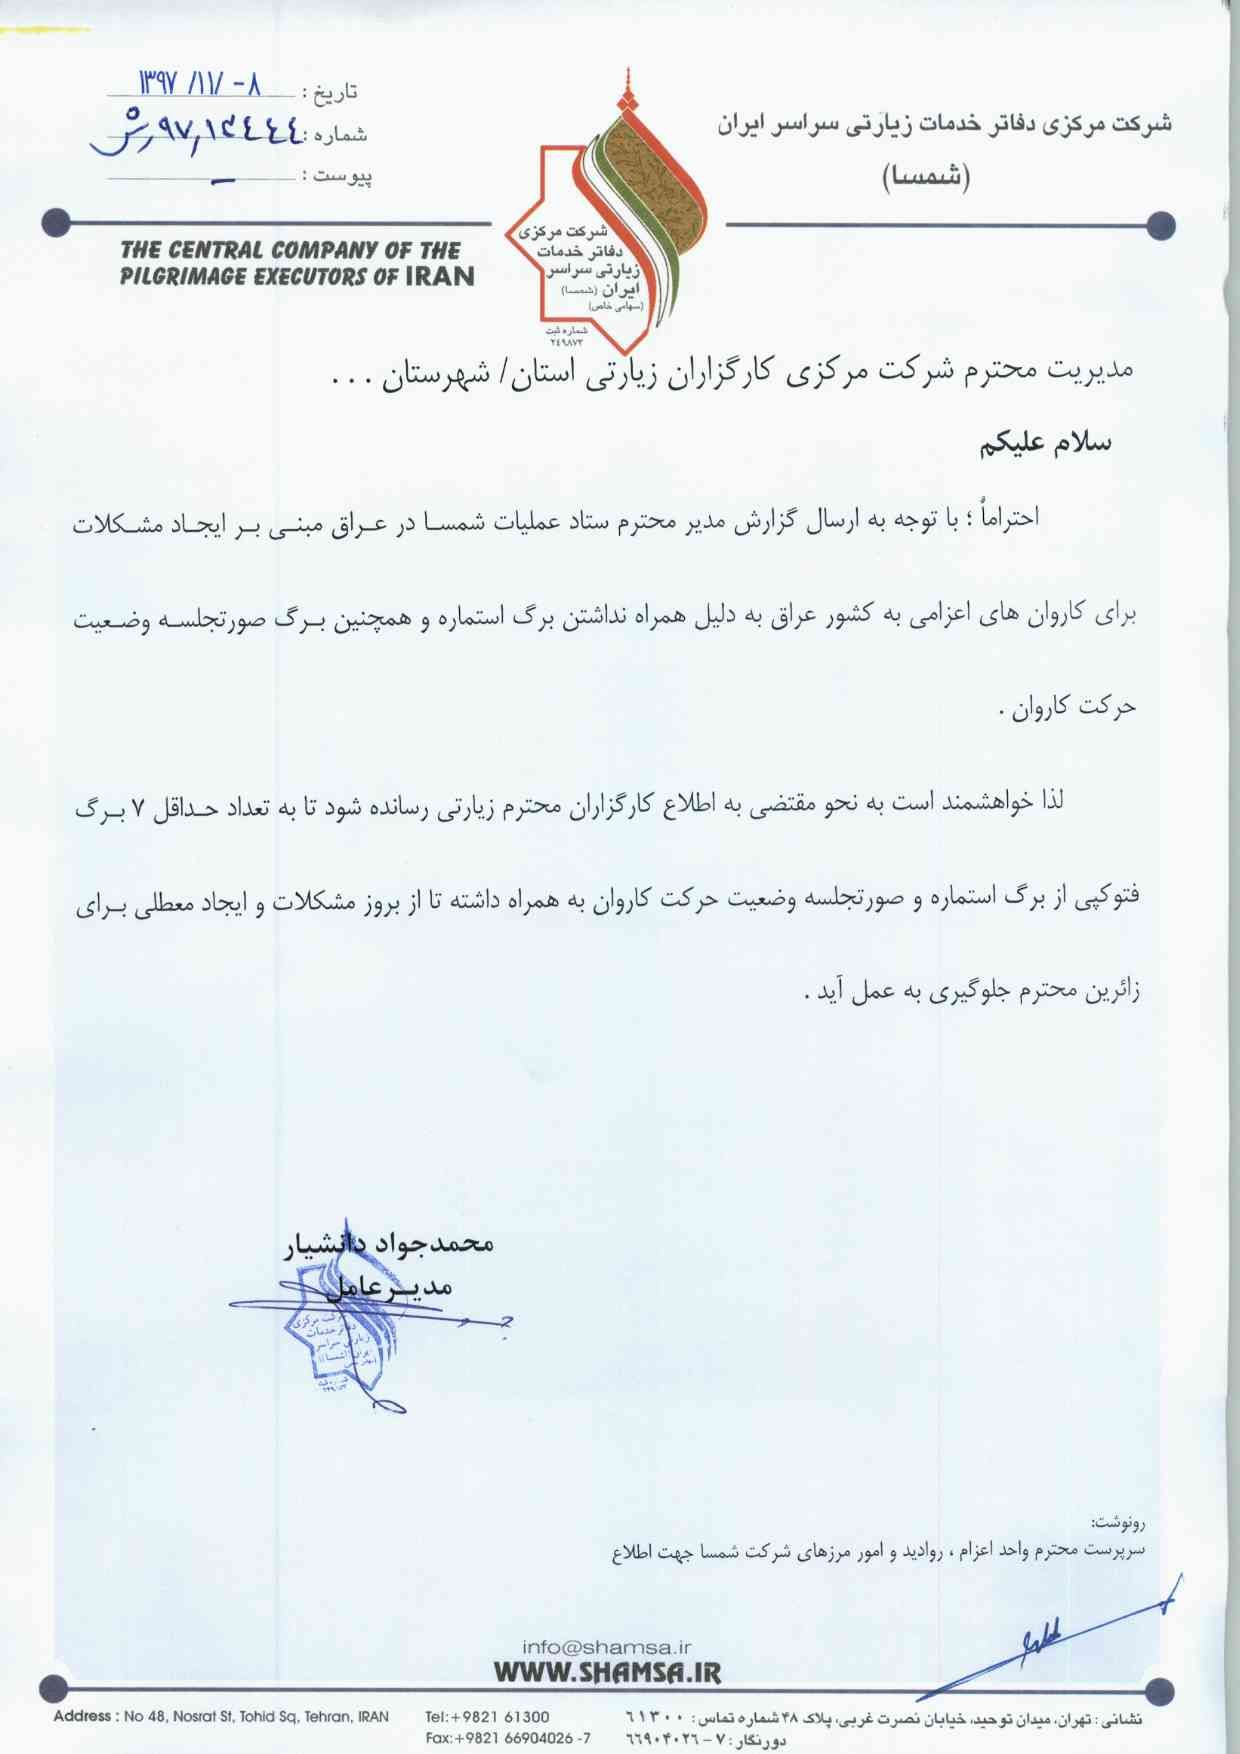 شرکت مرکزی دفاتر خدمات زیارتی سراسر ایران
(شمسا)
تاریخ : ۱۳۹۷/۱۱/۰۸
شماره :
پیوست : –
THE CENTRAL COMPANY OF THE
PILGRIMAGE EXECUTORS OF IRAN
شرکت مرکزی
دفاتر خدمات
زیارتی سراسر
ایران (شمسا)
(سهامی خاص)
شماره ثبت
۲۴۹۸۷۳
مدیریت محترم شرکت مرکزی کارگزاران زیارتی استان/ شهرستان . . .
سلام علیکم
احتراماً ؛ با توجه به ارسال گزارش مدیر محترم ستاد عملیات شمسا در عراق مبنی بر ایجاد مشکلات
برای کاروان های اعزامی به کشور عراق به دلیل همراه نداشتن برگ استماره و همچنین برگ صورتجلسه وضعیت
حرکت کاروان .
لذا خواهشمند است به نحو مقتضی به اطلاع کارگزاران محترم زیارتی رسانده شود تا به تعداد حداقل ۷ برگ
فتوکپی از برگ استماره و صورتجلسه وضعیت حرکت کاروان به همراه داشته تا از بروز مشکلات و ایجاد معطلی برای
زائرین محترم جلوگیری به عمل آید .
محمدجواد دانشیار
مدیرعامل
شرکت مرکزی
دفاتر خدمات
زیارتی سراسر
ایران (شمسا)
رونوشت:
سرپرست محترم واحد اعزام ، روادید و امور مرزهای شرکت شمسا جهت اطلاع
info@shamsa.ir
WWW.SHAMSA.IR
نشانی : تهران، میدان توحید، خیابان نصرت غربی، پلاک ۴۸ شماره تماس : ۶۱۳۰۰
دورنگار : ۷ – ۶۶۹۰۴۰۲۶
Address : No 48, Nosrat St, Tohid Sq, Tehran, IRAN Tel:+9821 61300
Fax:+9821 66904026 -7